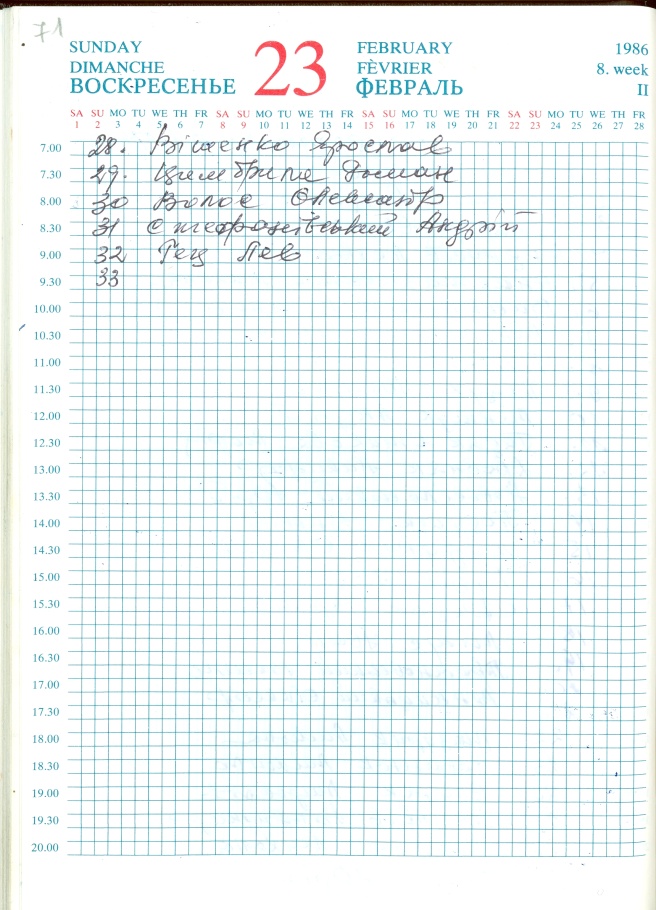 71
SUNDAY 23 FEBRUARY 1986
DIMANCHE FÈVRIER 8. week
ВОСКРЕСЕНЬЕ ФЕВРАЛЬ II
SA SU MO TU WE TH FR SA SU MO TU WE TH FR SA SU MO TU WE TH FR SA SU MO TU WE TH FR
1 2 3 4 5 6 7 8 9 10 11 12 13 14 15 16 17 18 19 20 21 22 23 24 25 26 27 28
7.00 28. Вітенко Ярослав
7.30 29. Цимбрила Роман
8.00 30 Волос Олександр
8.30 31 Андрій
9.00 32 Гец Лев
9.30 33
10.00
10.30
11.00
11.30
12.00
12.30
13.00
13.30
14.00
14.30
15.00
15.30
16.00
16.30
17.00
17.30
18.00
18.30
19.00
19.30
20.00